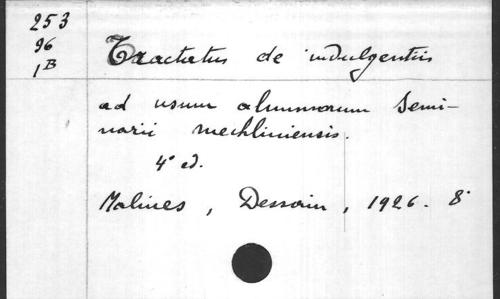 253
96
1B
Tractatus de indulgentiis
ad usum alumnorum Semi-
narii mechliniensis.
4° ed.
Malines, Dessain, 1926. 8°